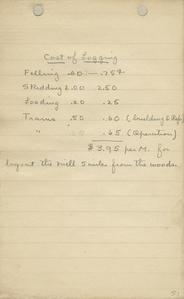 Cost of Logging
Felling .60 — .75
Skidding 2.00 2.50
Loading .20 .25
Trains .50 .60 (building & Rep)
" .65 (Operation)
$3.95 per M. for
logs at the mill 5 miles from the woods
51